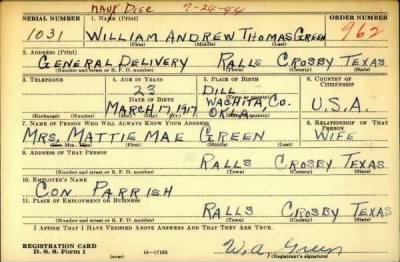 NAVY DISC 7-24-44
SERIAL NUMBER 1. NAME (Print) ORDER NUMBER
1031 WILLIAM ANDREW THOMAS GREEN 962
(First) (Middle) (Last)
2. ADDRESS (Print)
GENERAL DELIVERY RALLS CROSBY TEXAS
(Number and street or R. F. D. number) (Town) (County) (State)
3. TELEPHONE 4. AGE IN YEARS 5. PLACE OF BIRTH 6. COUNTRY OF CITIZENSHIP
23 DILL
DATE OF BIRTH (Town or county)
MARCH 17, 1917 WASHITA, CO. OKLA U.S.A.
(Exchange) (Number) (Mo.) (Day) (Yr.) (State or country)
7. NAME OF PERSON WHO WILL ALWAYS KNOW YOUR ADDRESS 8. RELATIONSHIP OF THAT PERSON
MRS. MATTIE MAE GREEN WIFE
(Mr., Mrs., Miss) (First) (Middle) (Last)
9. ADDRESS OF THAT PERSON
RALLS CROSBY TEXAS
(Number and street or R. F. D. number) (Town) (County) (State)
10. EMPLOYER'S NAME
CON PARRISH
11. PLACE OF EMPLOYMENT OR BUSINESS
RALLS CROSBY TEXAS
(Number and street or R. F. D. number) (Town) (County) (State)
I AFFIRM THAT I HAVE VERIFIED ABOVE ANSWERS AND THAT THEY ARE TRUE.
REGISTRATION CARD
D. S. S. Form 1 (over) 16-17105 W. A. Green
(Registrant's signature)